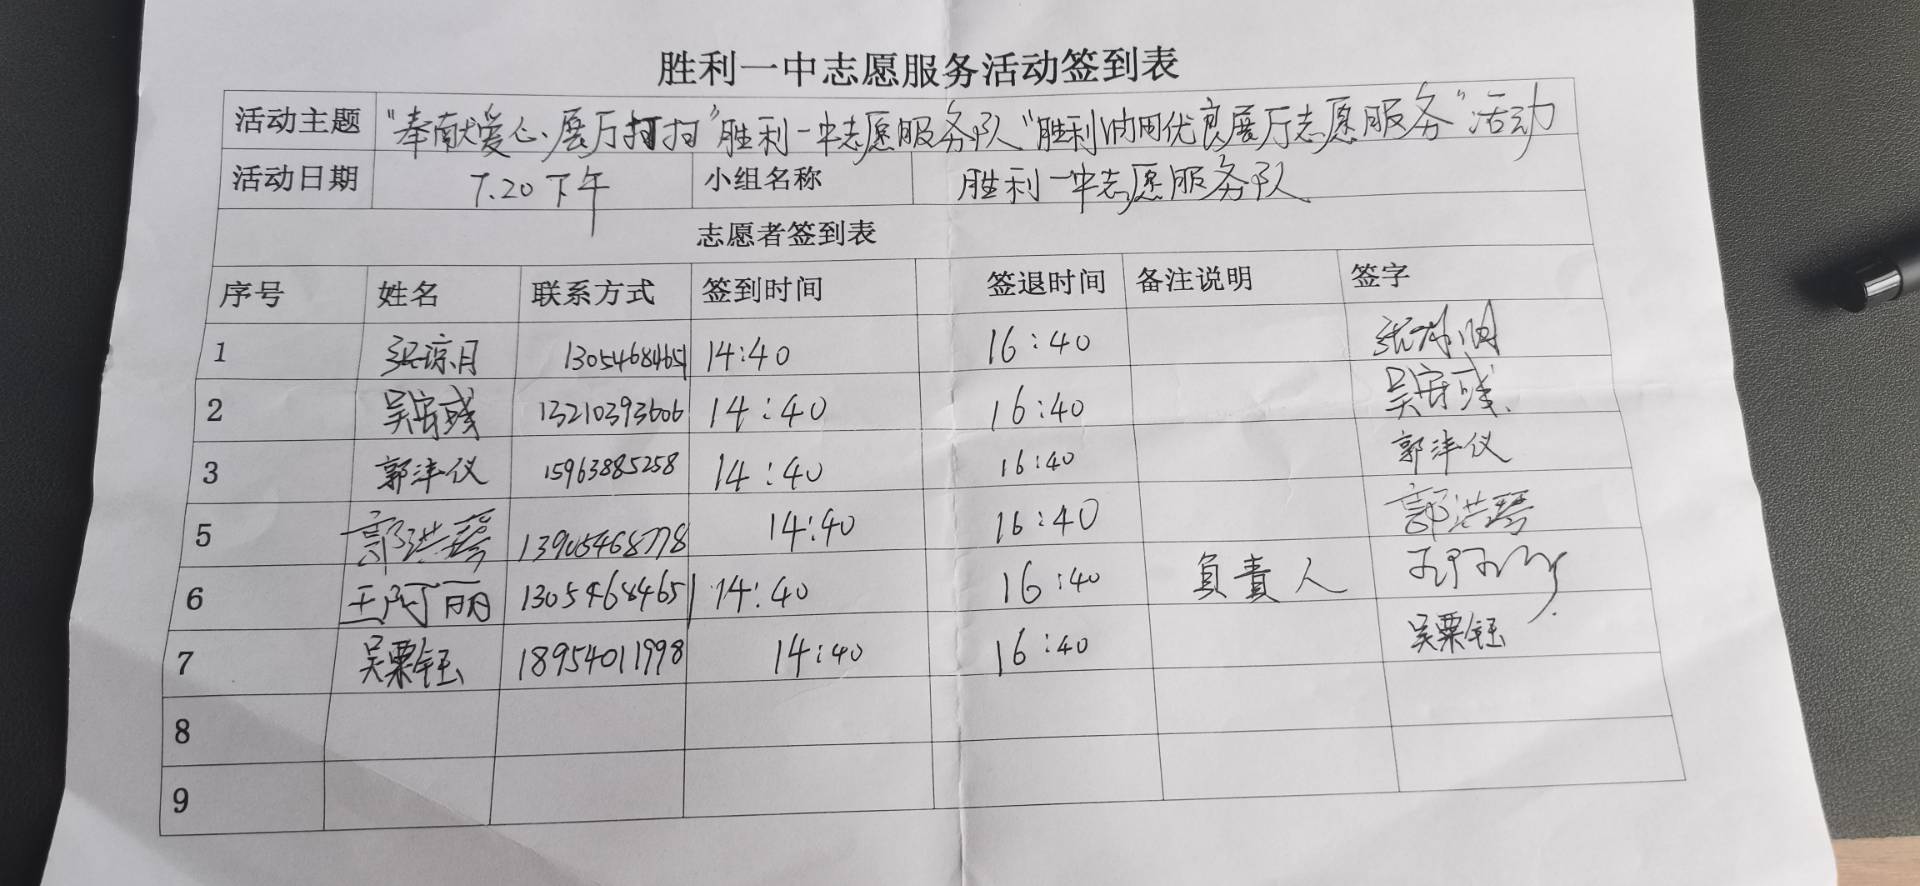 胜利一中志愿服务活动签到表
活动主题 "奉献爱心、展厅打扫"胜利一中志愿服务队"胜利内网优良展厅志愿服务"活动
活动日期 7.20下午 小组名称 胜利一中志愿服务队
志愿者签到表
序号 姓名 联系方式 签到时间 签退时间 备注说明 签字
1 张琼月 13054684651 14:40 16:40
2 吴宇彧 13210393606 14:40 16:40
3 郭沣仪 15963885258 14:40 16:40 郭沣仪
5 郭洪琴 13905468778 14:40 16:40 郭洪琴
6 王阿丽 13054684651 14:40 16:40 負責人
7 吴粟钰 18954011998 14:40 16:40 吴粟钰
8
9